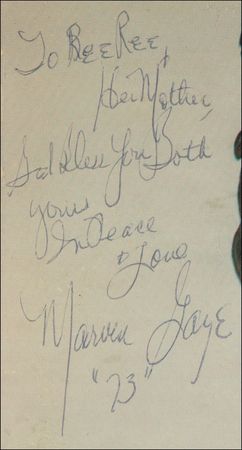 To BeeRee
+
Her Mother,
God Bless You Both
yours
In Peace
& Love
Marvin Gaye
"73"